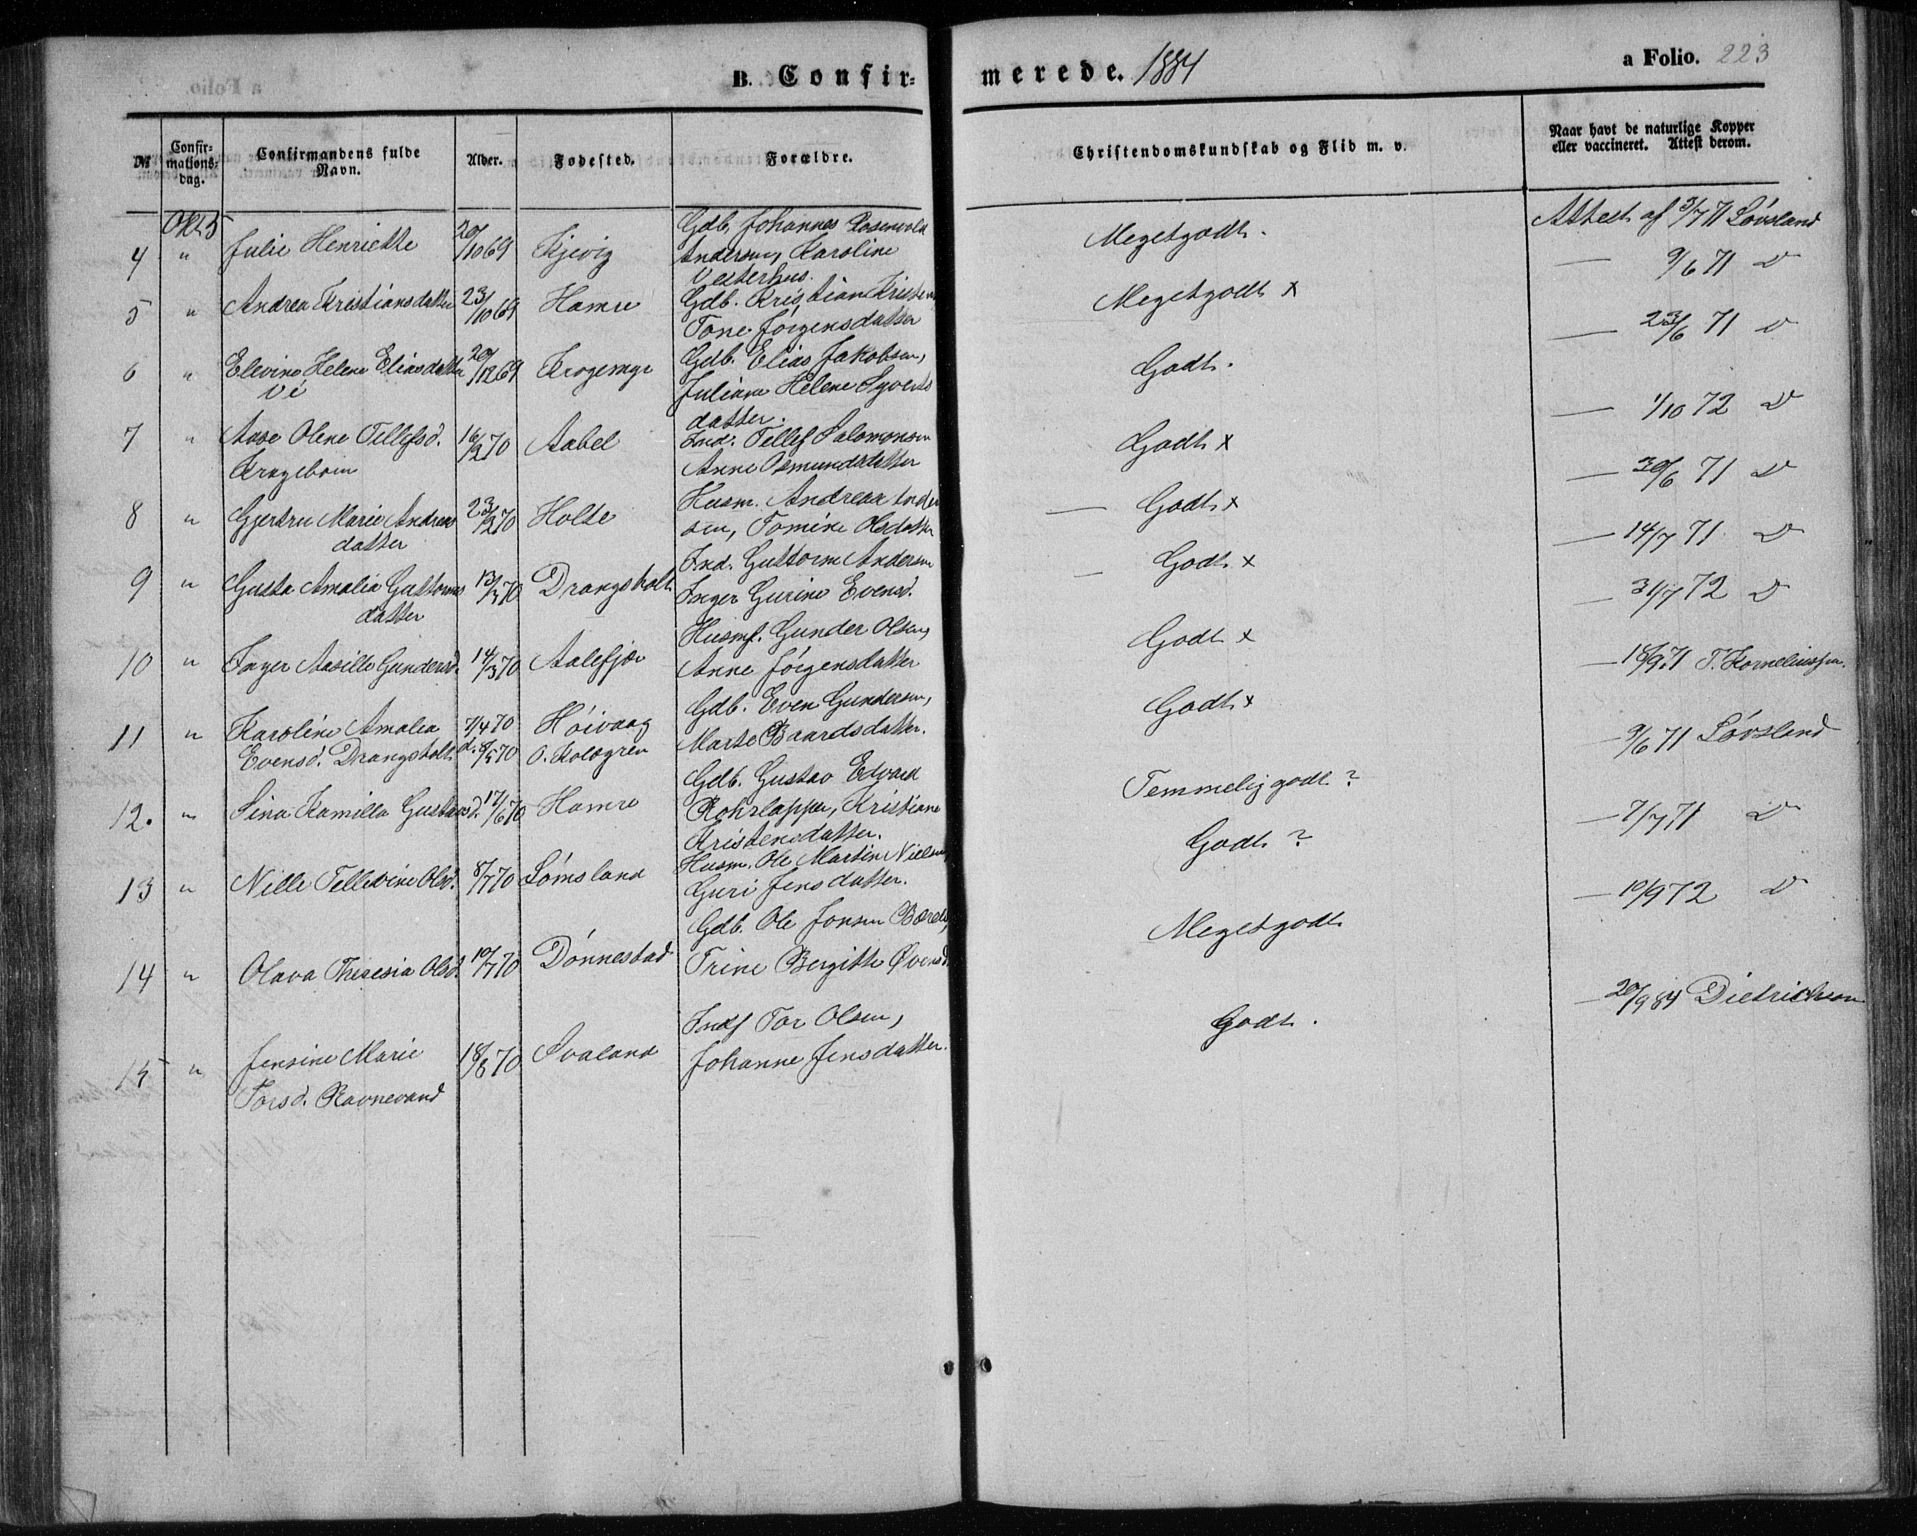 B. Confirmerede. 1884
a Folio. 223
№
Confirmations-dag.
Confirmandens fulde Navn.
Alder.
Fodested.
Forældre.
Christendomskundskab og Flid m. v.
Naar havt de naturlige Kopper eller vaccineret. Attest derom.
Okt 5
4 " Julie Henriette 20/10 69 Kjevig Gdb. Johannes Rosenvold
Andersen, Karoline
Vesterhus.
Megetgodt. Attest af 3/7 71 Løvsland
5 " Andrea Kristiansdatter 23/10 69 Hamre Gdb. Kristian Kristens
Tone Jörgensdatter
Megetgodt x — 9/6 71 D
6 " Elevine Helene Eliasdatter 20/12 69 Krogemyr Gdb. Elias Jakobsen,
Juliane Helene Syverts
datter.
Godt. — 23/6 71 D
7 " Aase Olene Tellefsd. 16/2 70 Aabel Ind. Tellef Salomonsen
Krogeboen Anne Osmundsdatter
Godt x — 1/10 72 D
8 " Gjertru Marie Andreas 23/2 70 Holte Husm. Andreas Ander
datter sen, Tomine Olsdatter
— Godt x — 30/6 71 D
9 " Gusta Amalia Guttorms 13/3 70 Drangsholt Ind. Guttorm Andersen
datter Inger Gurine Evensd.
— Godt x — 14/7 71 D
10 " Inger Aasille Gundersd. 14/3 70 Aalefjær Husmf. Gunder Olsen,
Anne Jörgensdatter
Godt x — 31/7 72 D
11 " Karoline Amalia 7/4 70 Höivaag Gdb. Even Gundersen,
Evensd. Drangsholt d. 8/5 70 O. Kolsgren Marte Baardsdatter.
Godt x — 18/9 71 T. Korneliussen.
12. " Sina Kamilla Gustavsd. 17/6 70 Hamre Gdb. Gustav Edvard
Rohrlapper, Kristiane
Kristensdatter.
Temmelig godt? 9/6 71 Løvsland
13 " Nille Tellevine Olsd. 8/7 70 Lömsland Husm. Ole Martin Nielsen
Guri Jensdatter.
Godt? — 7/7 71 D
14 " Olava Theresia Olsd. 10/7 70 Dönnestad Gdb. Ole Jonsen
Trine Bergitte
Megetgodt — 10/9 72 D
15 " Jensine Marie 18/8 70 Svaland Indf Tor Olsen,
Torsd. Ravnevand Johanne Jensdatter.
Godt. — 20/9 84 Dietrichson